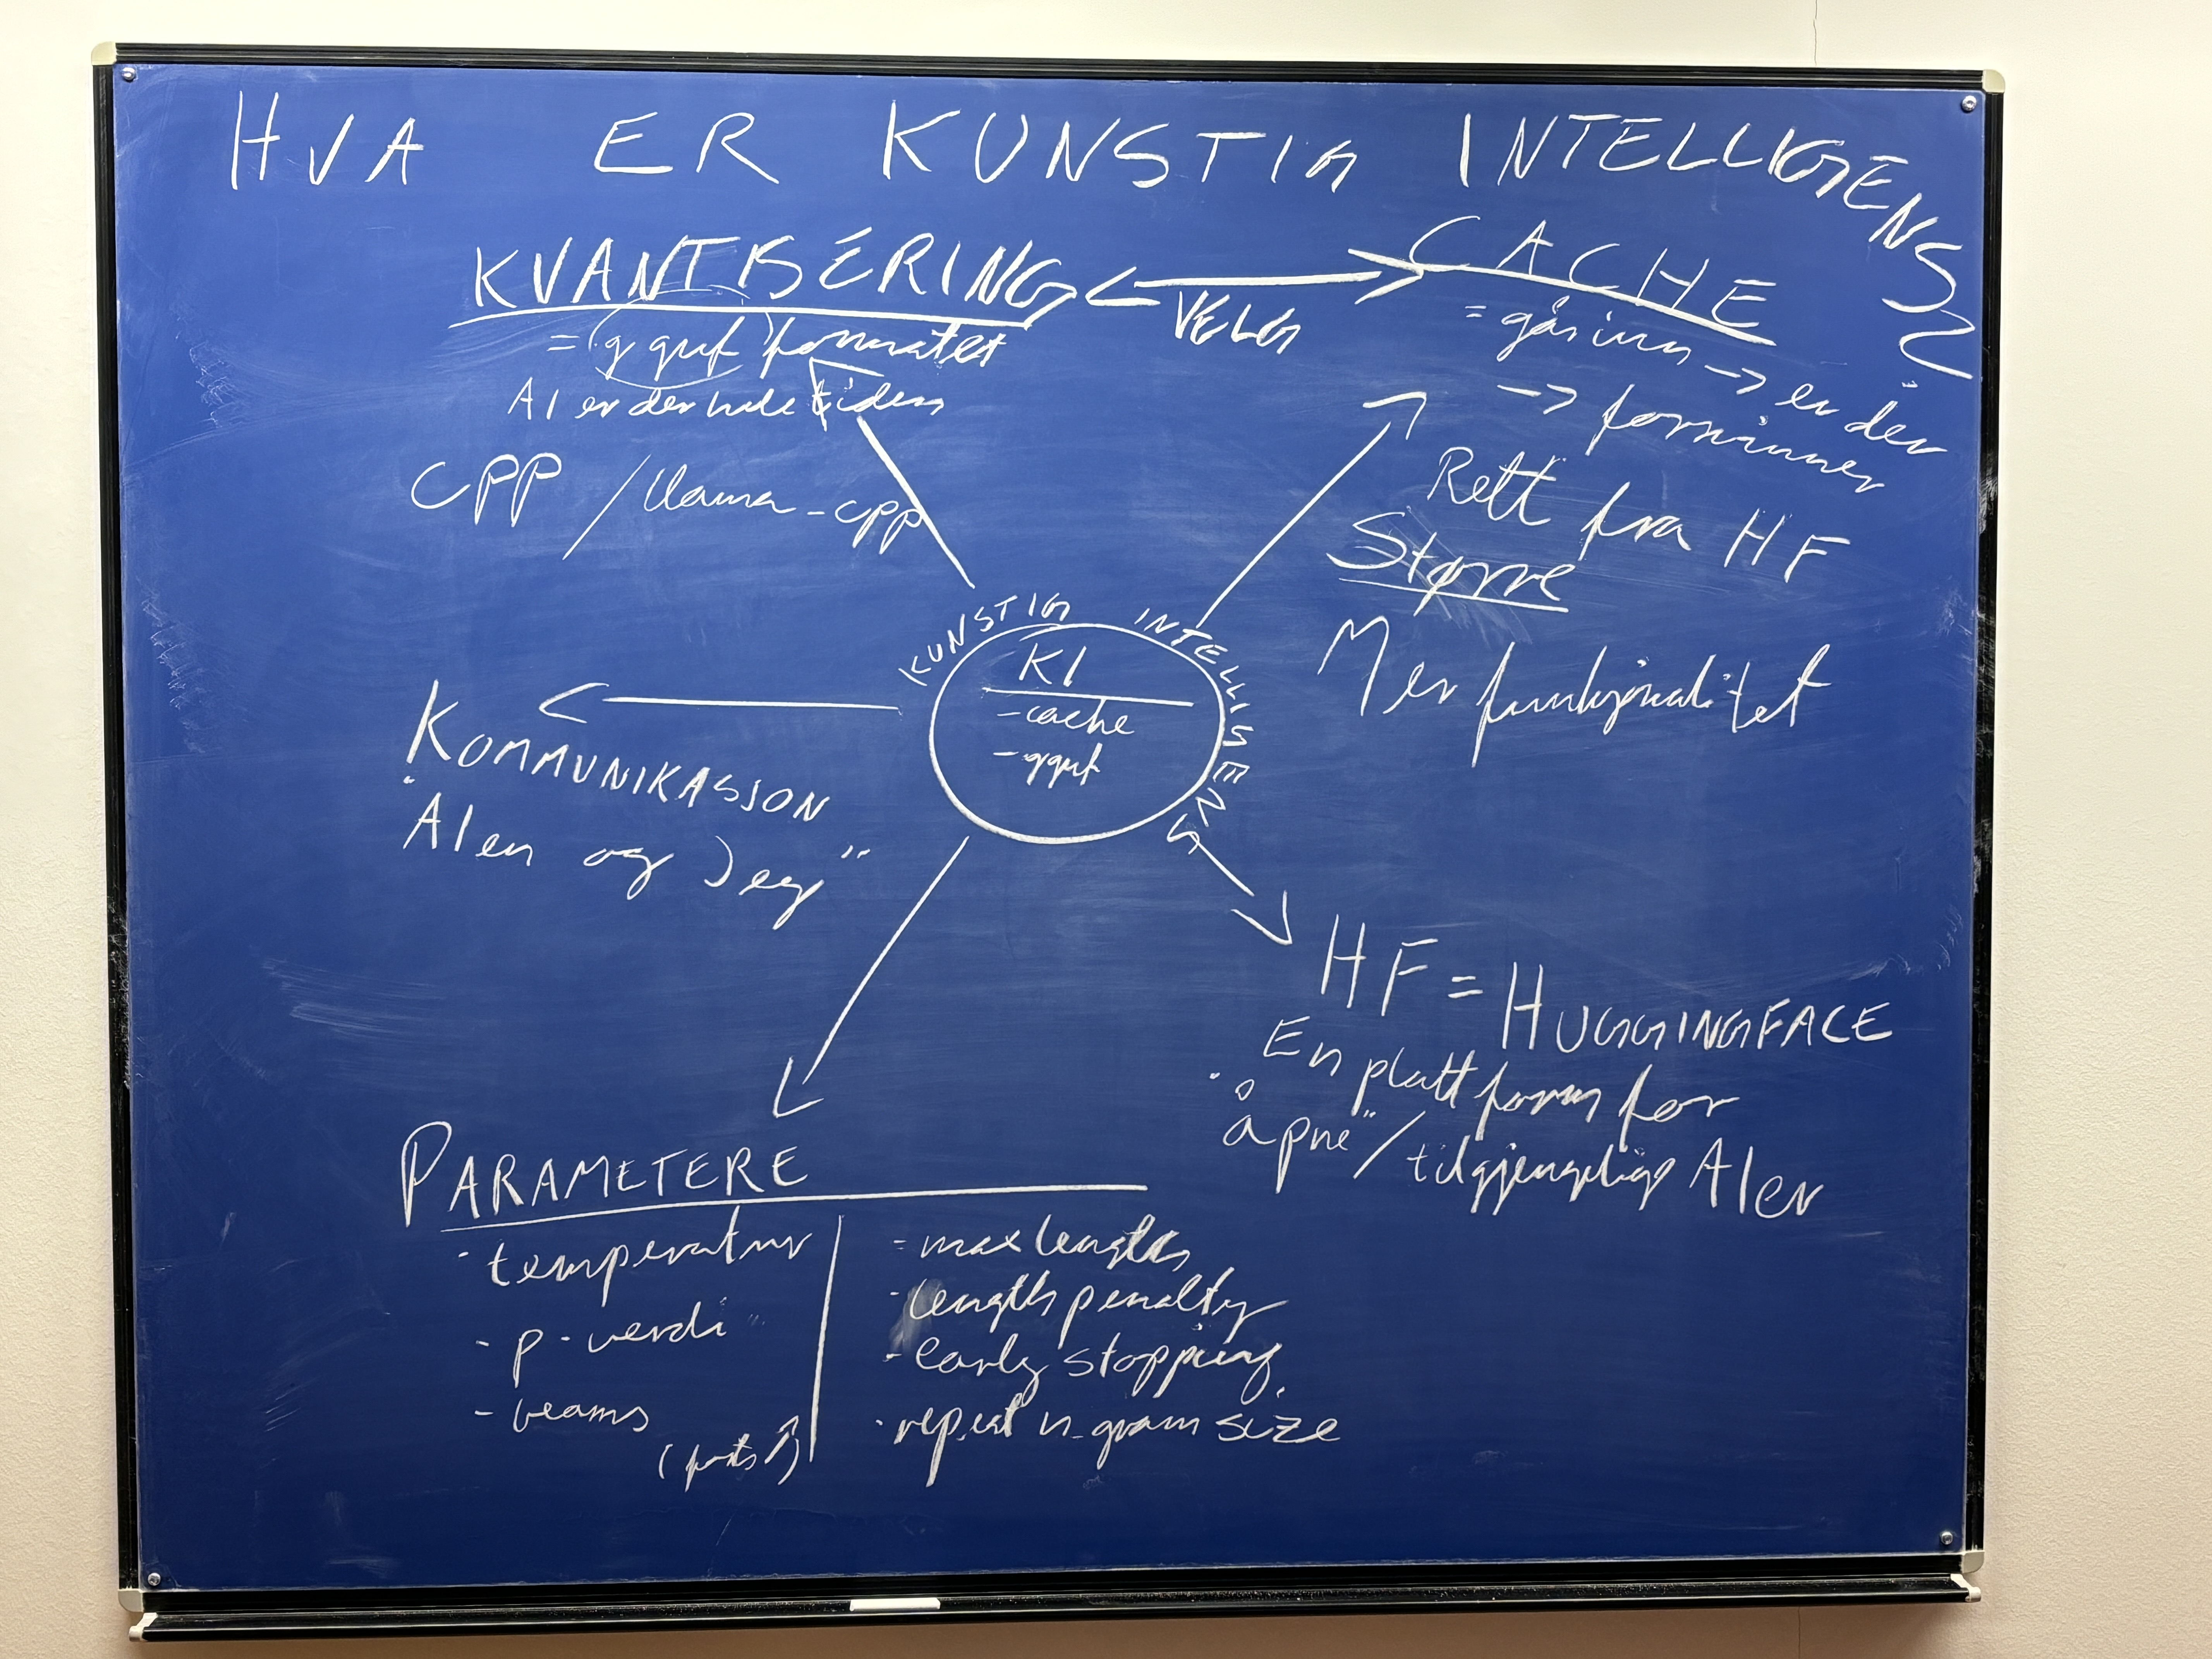 HVA ER KUNSTIG INTELLIGENS?
KVANTISERING
= (gguf) formatet
AI er der hele tiden
CPP / llama-cpp
VELG
CACHE
= går inn → er der
→ forsvinner
Rett fra HF
Større
Mer funksjonalitet
KUNSTIG INTELLIGENS
KI
- cache
- gguf
KOMMUNIKASJON
"AIen og Jeg"
HF = HUGGINGFACE
En plattform for
"åpne" / tilgjengelige AIer
PARAMETERE
- temperatur
- p-verdi
- beams
- max length
- length penalty
- early stopping
- repeat n-gram size